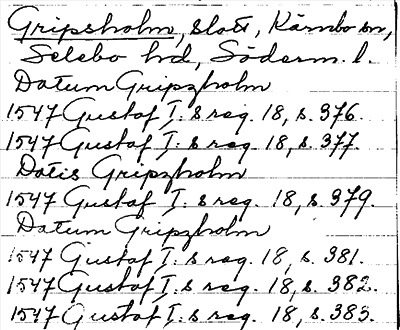 Gripsholm, slott, Kärnbo sn,
Selebo hd, Söderm. l.
Datum Gripzholm
1547 Gustaf I. s reg. 18, s. 376.
1547 Gustaf I. s reg. 18, s. 377.
Datis Gripzholm
1547 Gustaf I. s reg. 18, s. 379.
Datum Gripzholm
1547 Gustaf I. s reg. 18, s. 381.
1547 Gustaf I. s reg. 18, s. 382.
1547 Gustaf I. s reg. 18, s. 383.